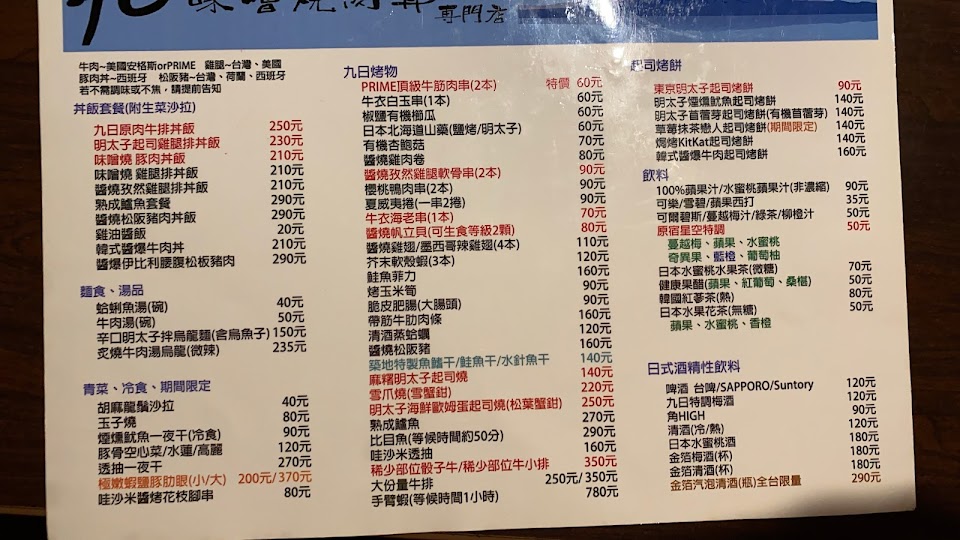 味噌燒肉丼
專門店
牛肉~美國安格斯orPRIME 雞腿~台灣、美國
豚肉丼~西班牙 松阪豬~台灣、荷蘭、西班牙
若不需調味或不焦,請提前告知
丼飯套餐(附生菜沙拉)
九日原肉牛排丼飯 250元
明太子起司雞腿排丼飯 230元
味噌燒 豚肉丼飯 210元
味噌燒 雞腿排丼飯 210元
醬燒孜然雞腿排丼飯 210元
熟成鱸魚套餐 290元
醬燒松阪豬肉丼飯 290元
雞油醬飯 20元
韓式醬爆牛肉丼 210元
醬爆伊比利腰腹松板豬肉 290元
麵食、湯品
蛤蜊魚湯(碗) 40元
牛肉湯(碗) 50元
辛口明太子拌烏龍麵(含烏魚子) 150元
炙燒牛肉湯烏龍(微辣) 235元
青菜、冷食、期間限定
胡麻龍鬚沙拉 40元
玉子燒 80元
煙燻魷魚一夜干(冷食) 90元
豚骨空心菜/水蓮/高麗 120元
透抽一夜干 270元
極嫩蝦鹽豚肋眼(小/大) 200元/370元
哇沙米醬烤花枝腳串 80元
九日烤物
PRIME頂級牛筋肉串(2本) 特價 60元
牛衣白玉串(1本) 60元
椒鹽有機櫛瓜 60元
日本北海道山藥(鹽烤/明太子) 60元
有機杏鮑菇 70元
醬燒雞肉卷 80元
醬燒孜然雞腿軟骨串(2本) 90元
櫻桃鴨肉串(2本) 90元
夏威夷捲(一串2捲) 90元
牛衣海老串(1本) 70元
醬燒帆立貝(可生食等級2顆) 80元
醬燒雞翅/墨西哥辣雞翅(4本) 110元
芥末軟殼蝦(3本) 120元
鮭魚菲力 160元
烤玉米筍 90元
脆皮肥腸(大腸頭) 90元
帶筋牛肋肉條 160元
清酒蒸蛤蠣 120元
醬燒松阪豬 160元
築地特製魚鰭干/鮭魚干/水針魚干 140元
麻糬明太子起司燒 140元
雪爪燒(雪蟹鉗) 220元
明太子海鮮歐姆蛋起司燒(松葉蟹鉗) 250元
熟成鱸魚 270元
比目魚(等候時間約50分) 290元
哇沙米透抽 160元
稀少部位骰子牛/稀少部位牛小排 350元
大份量牛排 250元/350元
手臂蝦(等候時間1小時) 780元
起司烤餅
東京明太子起司烤餅 90元
明太子煙燻魷魚起司烤餅 140元
明太子苜蓿芽起司烤餅(有機苜蓿芽) 140元
草莓抹茶戀人起司烤餅(期間限定) 140元
焗烤KitKat起司烤餅 140元
韓式醬爆牛肉起司烤餅 160元
飲料
100%蘋果汁/水蜜桃蘋果汁(非濃縮) 90元
可樂/雪碧/蘋果西打 35元
可爾碧斯/蔓越梅汁/綠茶/柳橙汁 50元
原宿星空特調 50元
蔓越梅、蘋果、水蜜桃
奇異果、藍橙、葡萄柚
日本水蜜桃水果茶(微糖) 70元
健康果醋(蘋果、紅葡萄、桑椹) 50元
韓國紅蔘茶(熱) 80元
日本水果花茶(無糖) 50元
蘋果、水蜜桃、香橙
日式酒精性飲料
啤酒 台啤/SAPPORO/Suntory 120元
九日特調梅酒 120元
角HIGH 90元
清酒(冷/熱) 120元
日本水蜜桃酒 180元
金箔梅酒(杯) 180元
金箔清酒(杯) 180元
金箔汽泡清酒(瓶)全台限量 290元